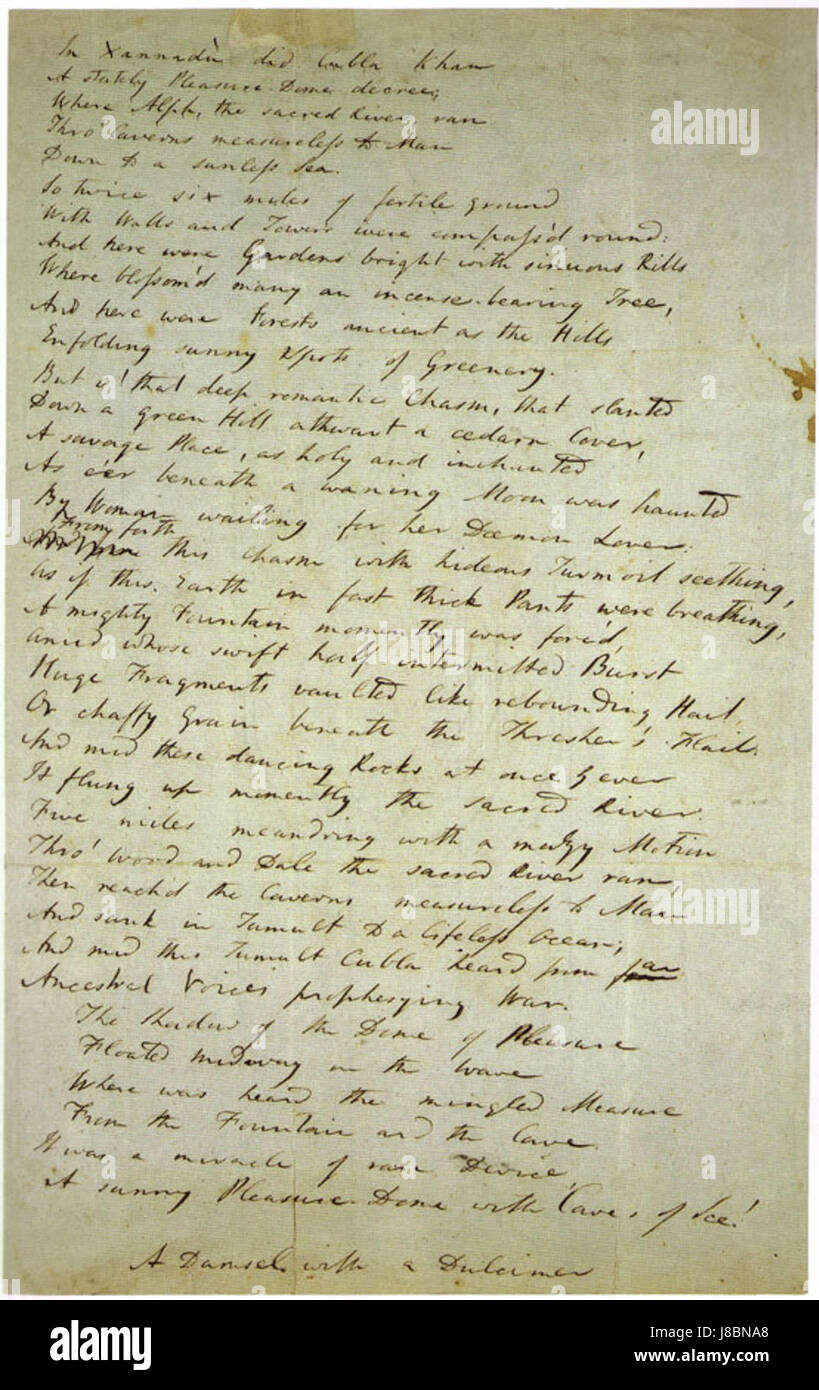 In Xannadù did Cubla Khan
A stately Pleasure-Dome decree;
Where Alph, the sacred River, ran
Thro' Caverns measureless to Man
Down to a sunless Sea.
So twice six miles of fertile ground
With Walls and Towers were compass'd round:
And here were Gardens bright with sinuous Rills
Where blossom'd many an incense-bearing Tree,
And here were Forests ancient as the Hills
Enfolding sunny Spots of Greenery.
But o! that deep romantic Chasm, that slanted
Down a green Hill athwart a cedarn Cover,
A savage Place, as holy and inchanted
As e'er beneath a waning Moon was haunted
By Woman wailing for her Dæmon Lover:
From forth this Chasm with hideous Turmoil seething,
As if this Earth in fast thick Pants were breathing,
A mighty Fountain momently was forc'd,
Amid whose swift half-intermitted Burst
Huge Fragments vaulted like rebounding Hail,
Or chaffy Grain beneath the Thresher's Flail.
And mid these dancing Rocks at once & ever
It flung up momently the sacred River.
Five miles meandring with a mazy Motion
Thro' Wood and Dale the sacred River ran,
Then reach'd the Caverns measureless to Man
And sank in Tumult to a lifeless Ocean;
And mid this Tumult Cubla heard from far
Ancestral Voices prophesying War.
The Shadow of the Dome of Pleasure
Floated midway on the Wave
Where was heard the mingled Measure
From the Fountain and the Cave.
It was a miracle of rare Device,
A sunny Pleasure-Dome with Caves of Ice!
A Damsel with a Dulcimer
alamy
alamy
alamy
Image ID: J8BNA8
www.alamy.com